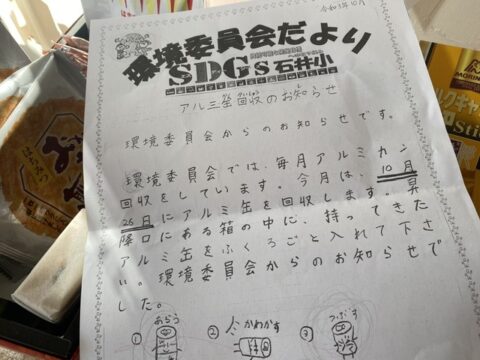 令和3年10月
環境委員会だより
SDGs 石井小
アルミ缶回収のお知らせ
環境委員会からのお知らせです。
環境委員会では、毎月アルミカン
回収をしています。今月は、10月
26日にアルミ缶を回収します。昇
降口にある箱の中に、持ってきた
アルミ缶をふくろごと入れて下さ
い。環境委員会からのお知らせで
した。
① あらう
② かわかす
③ つぶす
はちみつ